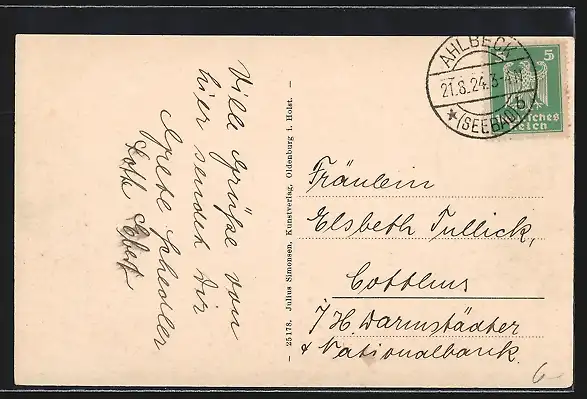 Viele Grüße von
hier sendet Dir
Grete Schedler
Lotte
— 25178. Julius Simonsen, Kunstverlag, Oldenburg i. Holst. —
AHLBECK
21.8.24.3-
b
★ (SEEBAD)
5
Deutsches
Reich
Fräulein
Elsbeth Tullick,
Cottbus
i/H. Darmstädter
& Nationalbank.
6